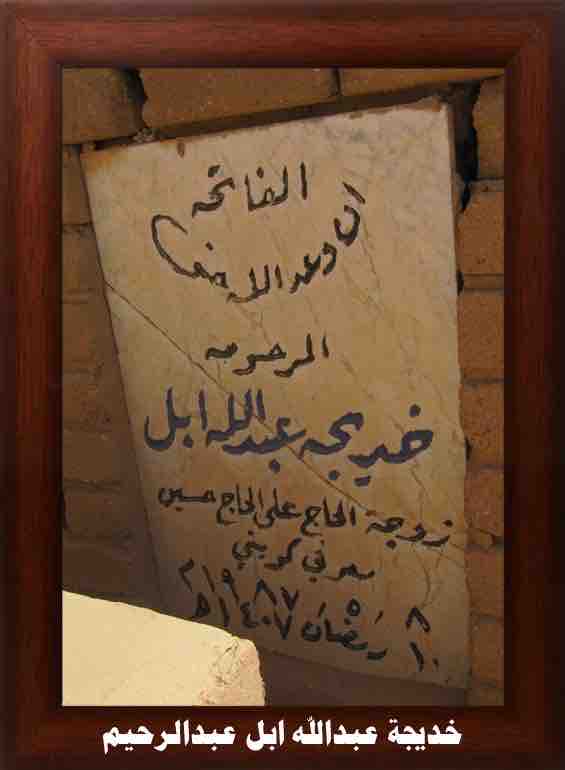 الفاتحه
ان وعد الله حق
المرحومه
خديجه عبدالله ابل
زوجة الحاج على الحاج حسين
معرفي كويتي
٨ ٥ ١٩٨٧م
١٠ رمضان ١٤٠٧هـ
خديجة عبدالله ابل عبدالرحيم